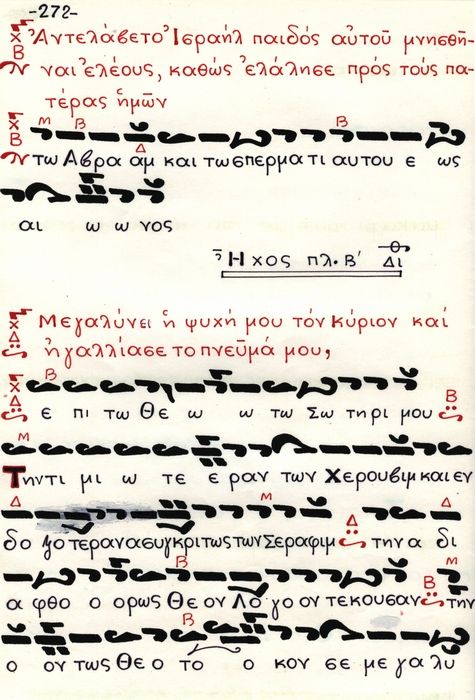 -272-
Ἀντελάβετο Ἰσραήλ παιδός αὐτοῦ μνησθῆ-
ναι ἐλέους, καθώς ἐλάλησε πρός τούς πα-
τέρας ἡμῶν
Μ Β Β
τω Αβρα αμ και τω σπερματι αυτου ε ως
Δ
αι ω ω νος
Ἦχος πλ. Β' Δι
Μεγαλύνει ἡ ψυχή μου τόν Κύριον καί
ἠγαλλίασε το πνεῦμά μου,
Β
ε πι τω Θε ω ω τω Σω τηρι μου Β
Μ
Την τι μι ω τε ε ραν των Χερουβιμ και εν
Δ Μ Δ
δο ξο τεραν ασυγκριτως των Σεραφιμ Δ την α δι
Β Μ
α φθο ο ορως Θε ον Λο γο ον τεκουσαν Β την
Β
ο ον τως Θε ο το ο κον σε με γα λυ